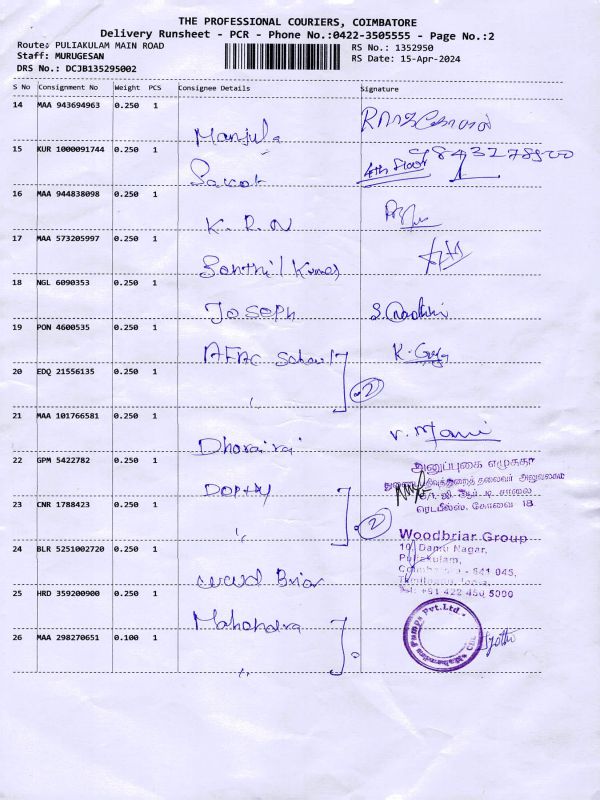 THE PROFESSIONAL COURIERS, COIMBATORE
Delivery Runsheet - PCR - Phone No.:0422-3505555 - Page No.:2
Route: PULIAKULAM MAIN ROAD
RS No.: 1352950
Staff: MURUGESAN
RS Date: 15-Apr-2024
DRS No.: DCJB135295002
S No Consignment No Weight PCS Consignee Details Signature
14 MAA 943694963 0.250 1
Manjula
15 KUR 1000091744 0.250 1
4th Floor
16 MAA 944838098 0.250 1
K.R.N
17 MAA 573205997 0.250 1
Senthil Kumar
18 NGL 6090353 0.250 1
Joseph
19 PON 4600535 0.250 1
AFAC School
20 EDQ 21556135 0.250 1
" 2
21 MAA 101766581 0.250 1
Dhorairaj V. Mani
22 GPM 5422782 0.250 1
அனுப்புகை எழுத்தர்
23 CNR 1788423 0.250 1
ரெட்பீல்ஸ், கோவை 18
" 2
Woodbriar Group
24 BLR 5251002720 0.250 1
Puliakulam,
Coimbatore - 641 045,
Tamilnadu, India,
Tel: +91 422 450 5000
wood Briar
25 HRD 359200900 0.250 1
Mahendra
26 MAA 298270651 0.100 1
Pumps Pvt. Ltd.
Jyothi
"